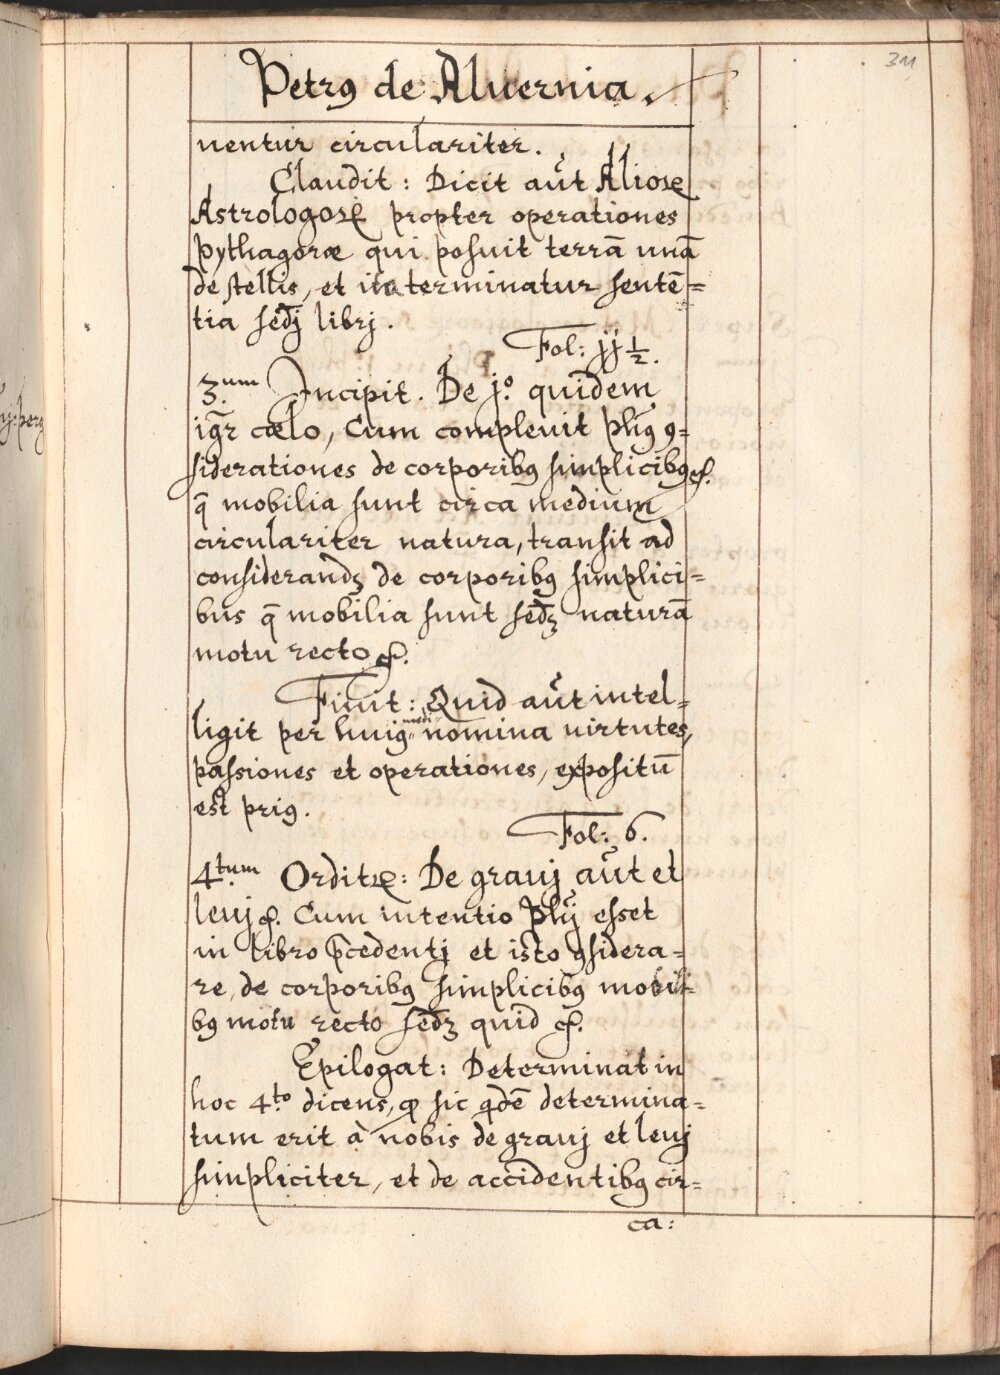 311
Petrꝰ de Aluernia.
uentur circulariter.
Claudit: Dicit aut̃ Alioꝝ
Astrologoꝝ propter operationes
pythagoræ qui posuit terrā unā
de stellis, et ita terminatur sentē=
tia sed̄j librj.
Fol: jj ½.
3.um Incipit. De j.o quidem
igr̄ cœlo, Cum compleuit phūs ꝯ=
siderationes de corporibꝰ simplicibꝰ ⁊c.
q̄ mobilia sunt circa medium
circulariter natura, transit ad
considerandꝫ de corporibꝰ simplici=
bus q̄ mobilia sunt sed̄ꝫ naturā
motu recto ⁊c.
Finit: Quid aut̃ intel=
ligit per huiꝰ=modi= nomina uirtutes,
passiones et operationes, expositū
est priꝰ.
Fol: 6.
4.tum Orditꝝ: De grauj aut̃ et
leuj ⁊c. Cum intentio Phīj esset
in libro p̄cedentj et isto ꝯsidera=
re, de corporibꝰ simplicibꝰ mobili=
bꝰ motu recto sed̄ꝫ quid ⁊c.
Epilogat: Determinat in
hoc 4.to dicens, ꝙ sic qdē determina=
tum erit à nobis de grauj et leuj
simpliciter, et de accidentibꝰ cir=
ca: